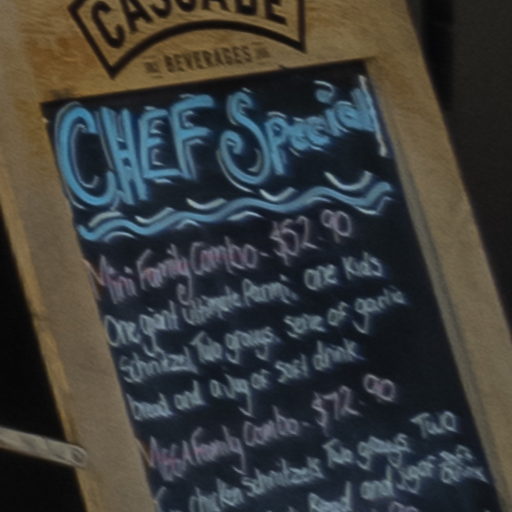 CASCADE
BEVERAGES
CHEF Special
Mini Family Combo - $52.90
One giant ultimate Parmi. one Kids
Schnitzel Two gravys. Serve of garlic
bread and a Jug of soft drink
MEGA Family Combo - $72.90
chicken Schnitzels Two gravys Two
Bread and Jug of